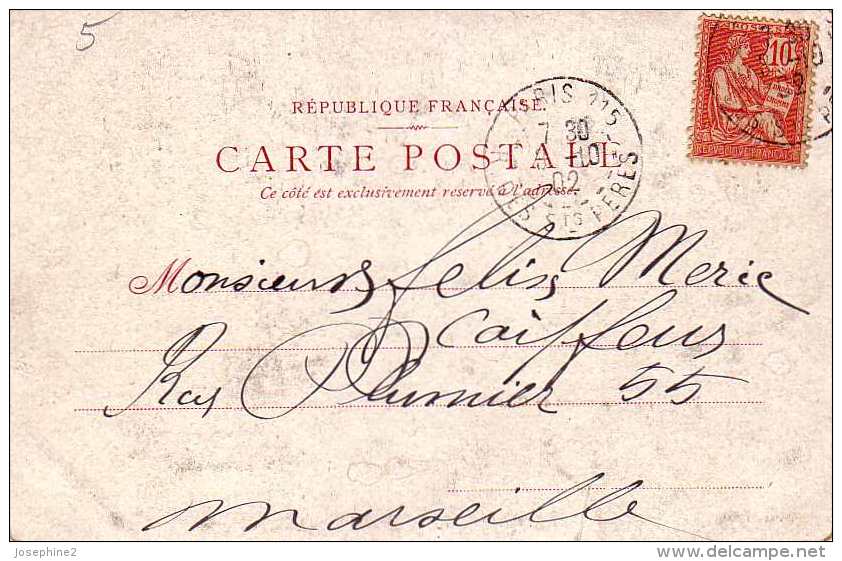 5
RÉPUBLIQUE FRANÇAISE
CARTE POSTALE
Ce côté est exclusivement réservé à l'adresse.
PARIS 115
7 30
10
02
STS PERES
10
POSTES
REPUBLIQUE FRANÇAISE
Monsieur Felix Meric
Coiffeur
Rue Plumier 55
Marseille
Josephine2
www.delcampe.net